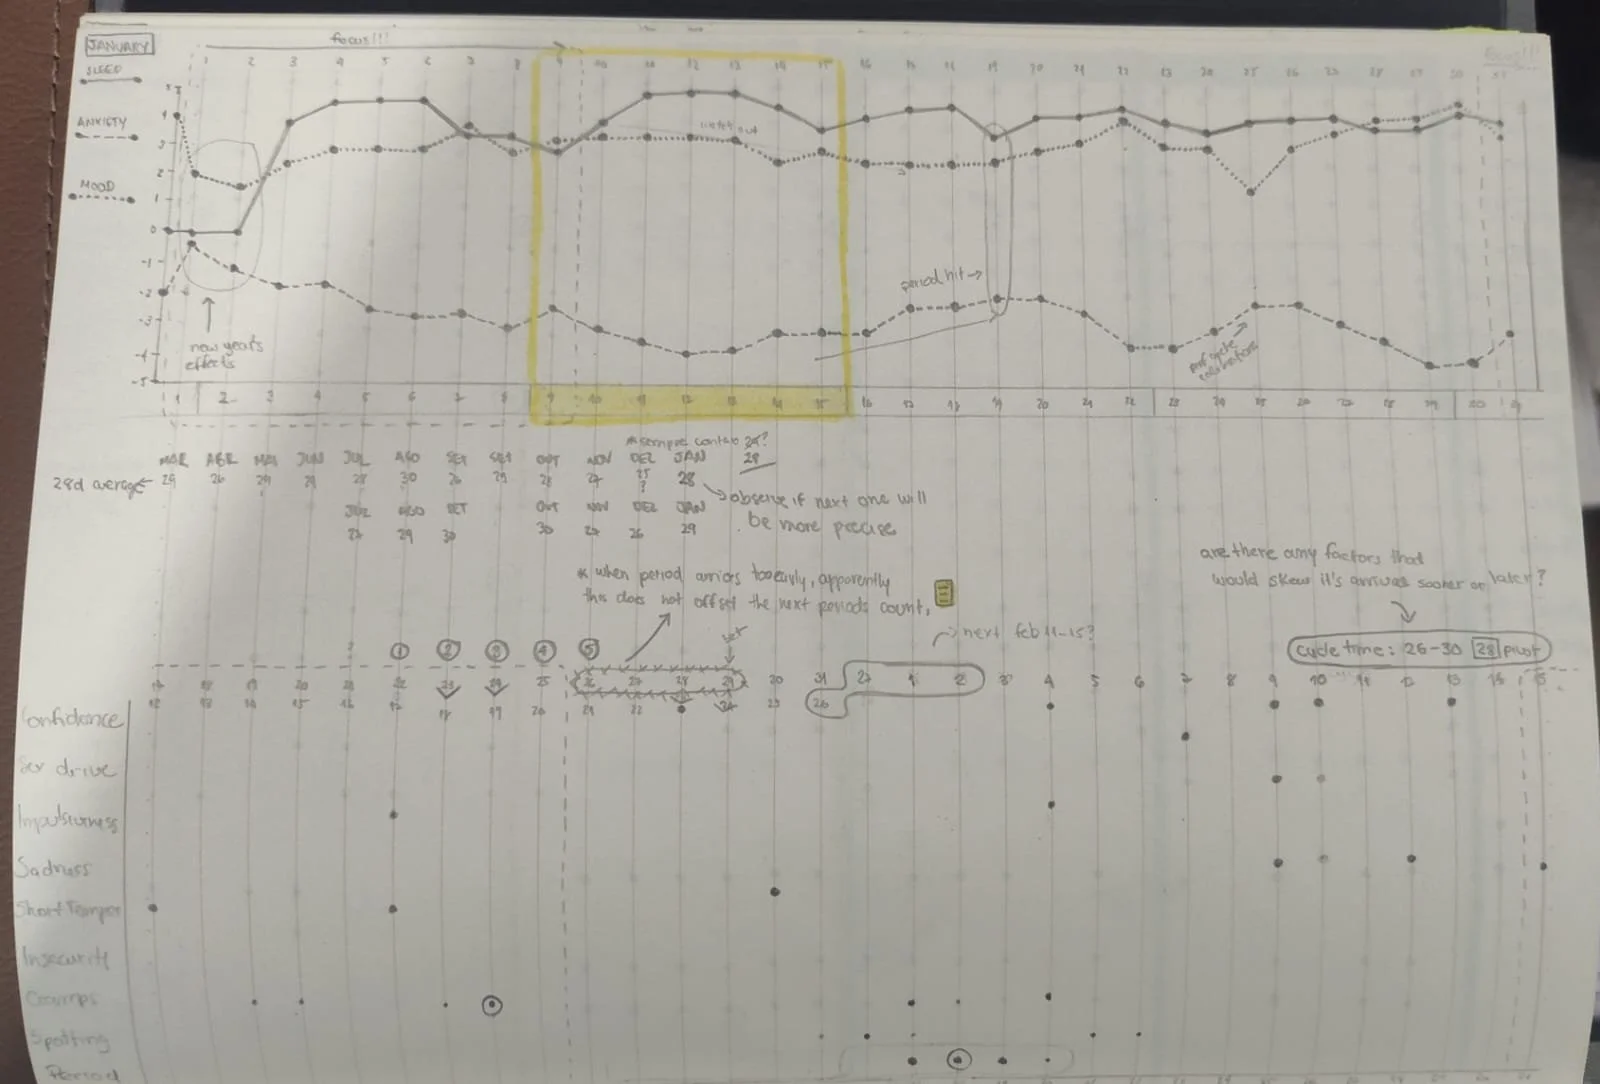 JANUARY
focus!!!
SLEEP
1 2 3 4 5 6 7 8 9 10 11 12 13 14 15 16 17 18 19 20 21 22 23 24 25 26 27 28 29 30 31
5
4
ANXIETY
3
2
MOOD
1
0
-1
period hit →
-2
-3
new year's
effects
-4
-5
1 2 3 4 5 6 7 8 9 10 11 12 13 14 15 16 17 18 19 20 21 22 23 24 25 26 27 28 29 30 31
* sempre contar 28?
MAR ABR MAI JUN JUL AGO SET SET OUT NOV DEZ JAN 28
28d average ← 29 26 29 29 28 30 26 29 28 27 25 28
? observe if next one will
JUL AGO SET OUT NOV DEZ JAN be more precise
27 29 30 30 27 26 29
are there any factors that
would skew it's arrival sooner or later?
* when period arrives too early, apparently
this does not offset the next periods count.
next feb 11-15?
1 2 3 4 5
cycle time: 26-30 28 pivot
17 18 19 20 21 22 23 24 25 26 27 28 29 30 31 27 1 2 3 4 5 6 7 8 9 10 11 12 13 14 15
12 13 14 15 16 17 18 19 20 21 22 24 25 26
Confidence
Sex drive
Impulsiveness
Sadness
Short Temper
Insecurity
Cramps
Spotting
Period